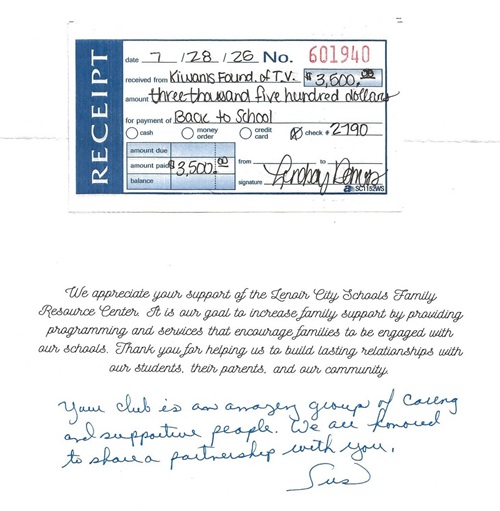 RECEIPT
date 7/28/26 No. 601940
received from Kiwanis Found. of T.V. $3,500.00
amount three thousand five hundred dollars
for payment of Back to School
cash money order credit card check # 2790
amount due
amount paid $3,500.00 from to
balance signature
SC1152WS
We appreciate your support of the Lenoir City Schools Family
Resource Center. It is our goal to increase family support by providing
programming and services that encourage families to be engaged with
our schools. Thank you for helping us to build lasting relationships with
our students, their parents, and our community.
Your club is an amazing group of caring
and supportive people. We are honored
to share a partnership with you.